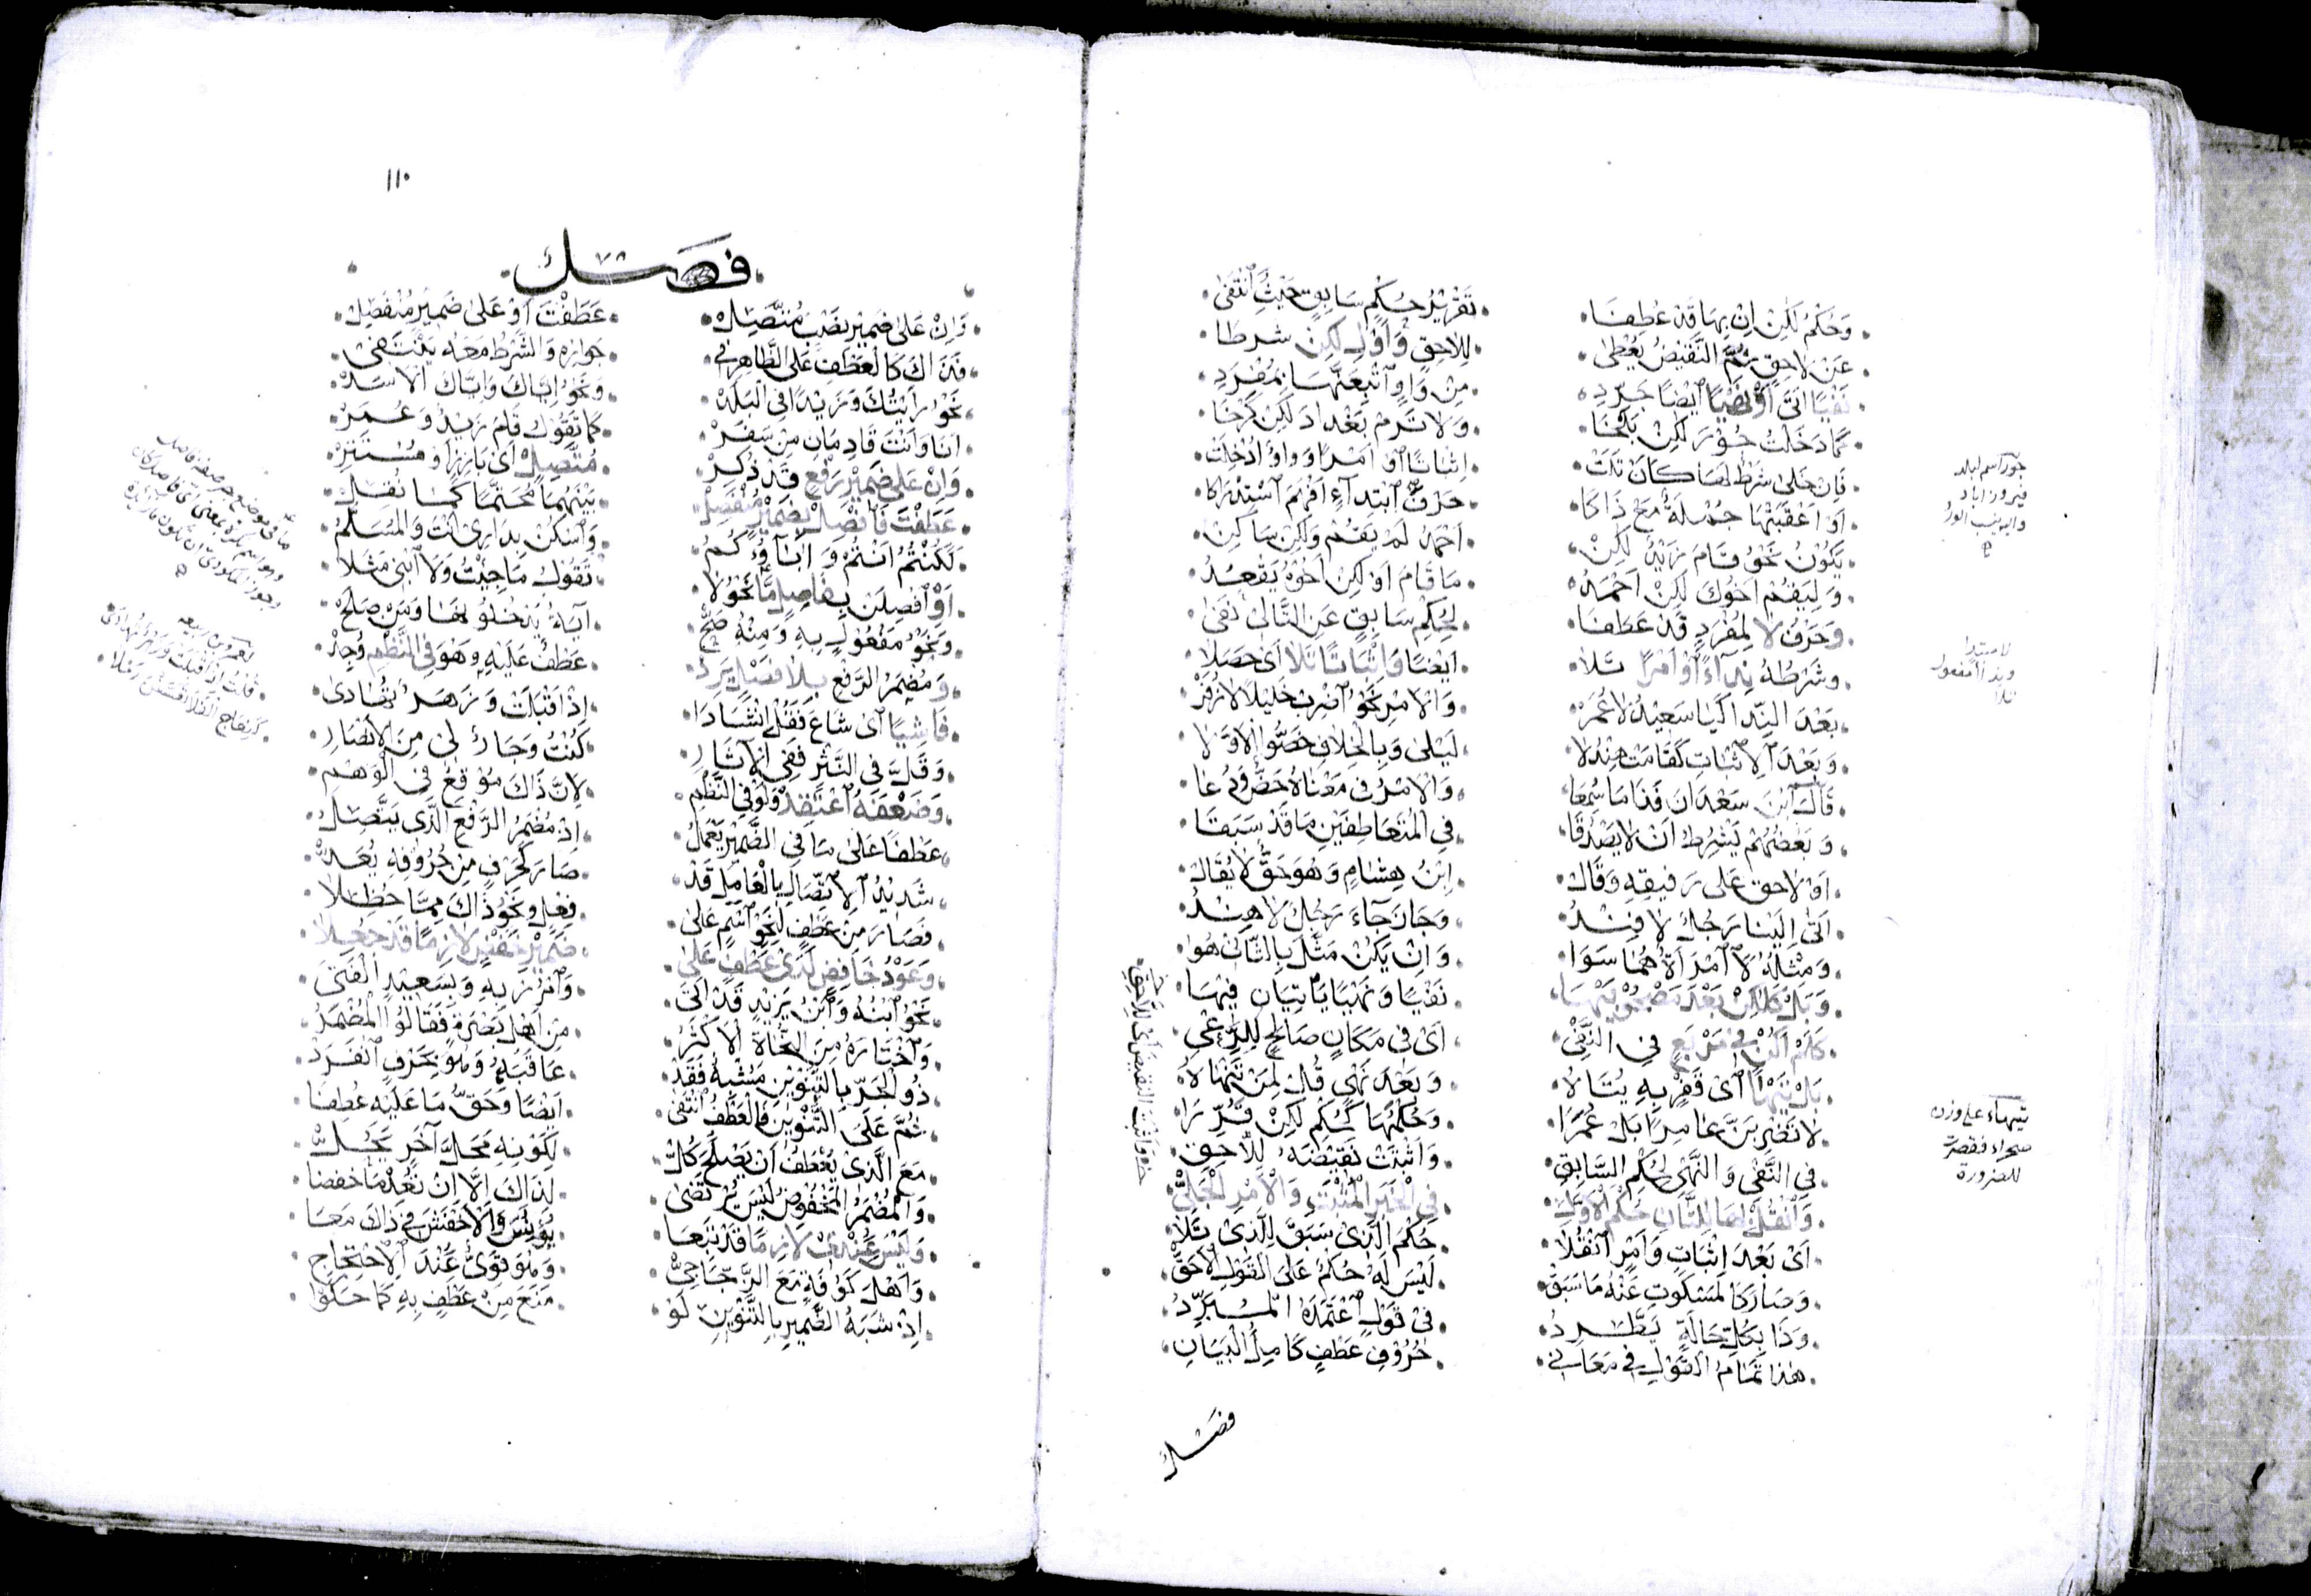 وَحُكْمُ لٰكِنْ اِنْ بِهَا قَدْ عُطِفَا تَقْرِيْرُ حُكْمِ سَابِقٍ حَيْثُ انْتَفٰى
عَنْ لَاحِقٍ ثُمَّ النَّقِيْضُ يُعْطٰى لِلَاحِقٍ وَاَوْلِ لٰكِنْ شرطَا
نَفْيًا اَتٰى اَوْ نَهْيًا اَيْضًا جَرِّدِ مِنْ وَاوٍ اَتْبِعَنَّهَا بِمُفْرَدِ
كَمَا دَخَلْتُ جُوْرَ لٰكِنْ بَلْخَا وَلَا تَرُمْ بَغْدَادَ لٰكِنْ كَرْخَا
فَاِنْ خَلٰى شَرْطٌ لَهَا كَانْ تَلَتْ اِثْبَاتًا اَوْ اَمْرًا وَوَاوٌ اُدْخِلَتْ
اَوْ اَعْقَبَتْهَا جُمْلَةٌ مَعْ ذَاكَا حَرْفُ ابْتِدَاءٍ اَفْهَمَ اسْتِدْرَاكَا
يَكُوْنُ نَحْوُ قَامَ زَيْدٌ لٰكِنْ اَحْمَدُ لَمْ يَقُمْ وَلٰكِنْ سَاكِنْ
وَلِيَقُمْ اَخُوْكَ لٰكِنْ اَحْمَدُ مَا قَامَ اَوْ لٰكِنْ اَخُوْهُ يَقْعُدُ
وَحَرْفُ لَا لِمُفْرَدٍ قَدْ عَطَفَا لِحُكْمِ سَابِقٍ عَنِ التَّالِىْ نَفٰى
وَشَرْطُهُ نِدَآءً اَوْ اَمْرًا تَلَا اَيْضًا وَاِثْبَاتًا تَلَا اَىْ حَصَلَا
بَعْدَ النِّدَا كَيَا سَعِيْدُ لَا عُمَرْ وَالْاَمْرِ نَحْوُ اضْرِبْ خَلِيْلًا لَا زُفَرْ
وَبَعْدَ الْاِثْبَاتِ كَقَامَتْ هِنْدُ لَا لَيْلٰى وَبِالْخِلَافِ خَصُّوا الْاَوَّلَا
قَالَ ابْنُ سَعْدَانَ فَذَا مَا سُمِعَا وَالْاَمْرُ فِىْ مَعْنَاهُ حَضٌّ وَدُعَا
وَبَعْضُهُمْ يَشْرِطُ اَنْ لَا يَصْدُقَا فِى الْمُتَعَاطِفَيْنِ مَا قَدْ سَبَقَا
اَوْ لَاحِق عَلٰى رَفِيقِهٖ وَقَالْ اِبْنُ هِشَامٍ وَهُوَ حَقٌّ لَا يُقَالْ
اَتٰى اِلَيْنَا رَجُلٌ لَا فِنْدُ وَجَازَ جَآءَ رَجُلٌ لَا هِنْدُ
وَمِثْلُهُ لَا امْرَاَةٌ هُمَا سَوَا وَاِنْ يَكُنْ مَثَّلَ بِالثَّانِىْ هُوَا
وَبَلْ كَلٰكِنْ بَعْدَ مَصْحُوْبَيْهَا نَفْيًا وَنَهْيًا يَاْتِيَانِ فِيْهَا
كَلَمْ اَكُنْ فِىْ مَرْبَعٍ فِى النَّفْىِ اَىْ فِى مَكَانٍ صَالِحٍ لِلرَّعْىِ
بَلْ تَيْهَا اَىْ قَفْرٍ بِهٖ يُتَاهُ وَبَعْدَ نَهْىٍ قُلْ لِمَنْ تَنْهَاهُ
لَا تَضْرِبَنَّ عَامِرًا بَلْ عُمَرَا وَحُكْمُهَا كَحُكْمِ لٰكِنْ قَرِّرَا
فِى النَّفْىِ وَالنَّهْىِ لِحُكْمِ السَّابِقِ وَاَثْبَتَتْ نَقِيْضَهُ لِلَّاحِقِ
وَانْقُلْ بِهَا لِلثَّانِ حُكْمَ الْاَوَّلِ فِى الْخَبَرِ الْمُثْبَتِ وَالْاَمْرِ الْجَلِىّ
اَىْ بَعْدَ اِثْبَاتٍ وَاَمْرٍ انْقُلَا حُكْمَ الَّذِىْ سَبَقَ لِلَّذِىْ تَلَا
وَصَارَ كَالْمَسْكُوتِ عَنْهُ مَا سَبَقْ لَيْسَ لَهُ حُكْمٌ عَلَى الْقَوْلِ الْاَحَقّ
وَذَا بِكُلِّ حَالَةٍ يَطَّرِدُ فِىْ قَوْلٍ اعْتَمَدَهُ الْمُبَرِّدُ
هٰذَا تَمَامُ الْقَوْلِ فِىْ مَعَانِىْ حُرُوْفِ عَطْفٍ كَامِلُ الْبَيَانِ
فصل
جور اسم لبلد
فيروزاباد
واليه ينسب الورد
تيهاء على وزن
صحراء فقصر
للضرورة
١١٠
٧٨
فصل
وَاِنْ عَلٰى ضَمِيْرِ نَصْبٍ مُتَّصِلْ عَطَفْتَ اَوْ عَلٰى ضَمِيْرٍ مُنْفَصِلْ
فَذَاكَ كَالْعَطْفِ عَلَى الظَّاهِرِ فِىْ جَوَازِهٖ وَالشَّرْطُ مَعَهُ يَنْتَفِىْ
نَحْوُ رَاَيْتُكَ وَزَيْدًا فِى الْبَلَدْ وَنَحْوُ اِيَّاكَ وَاِيَّاكَ الْاَسَدْ
اَنَا وَاَنْتَ قَادِمَانِ مِنْ سَفَرْ كَمَا تَقُوْلُ قَامَ زَيْدٌ وَعُمَرْ
وَاِنْ عَلٰى ضَمِيْرِ رَفْعٍ قَدْ ذُكِرْ مُتَّصِلْ اَىْ بَارِزٍ اَوْ مُسْتَتِرْ
عَطَفْتَ فَافْصِلْ بِضَمِيْرٍ مُنْفَصِلْ بَيْنَهُمَا مُحَتَّمًا كَمَا نُقِلْ
لَكُنْتُمُ اَنْتُمْ وَاٰبَآؤُكُمُ وَاسْكُنْ بِدَارِىْ اَنْتَ وَالْمُسَلَّمُ
اَوْ افْصِلَنْ بِفَاصِلٍ مَّا نَحْوُ لَا تَقُوْلُ مَا جِئْتُ وَلَا ابْنِىْ مَثَلَا
وَنَحْوُ مَفْعُوْلٍ بِهٖ وَمِنْهُ صَحّ اٰيَةُ يَدْخُلُوْنَهَا وَمَنْ صَلَحْ
وَمُضْمَرُ الرَّفْعِ بِلَا فَصْلٍ يَرِدْ عَطْفٌ عَلَيْهِ وَهْوَ فِى النَّظْمِ وُجِدْ
فَاشِيًا اَىْ شَاعَ فَقُلْ اِنْشَادَا اِذْ اَقْبَلَتْ وَزَهْرٌ تَهَادٰى
وَقَلَّ فِى النَّثْرِ فَفِى الْاٰثَارِ كُنْتُ وَجَارٌ لِىْ مِنَ الْاَنْصَارِ
وَضَعْفَهُ اعْتَقِدْ وَلَوْ فِى النَّظْمِ لِاَنَّ ذَاكَ مُوْقِعٌ فِى الْوَهْمِ
عَطْفًا عَلٰى مَا فِى الضَّمِيْرِ يَعْمَلُ اِذْ مُضْمَرُ الرَّفْعِ الَّذِىْ يَتَّصِلُ
شَدِيْدُ الْاِتِّصَالِ بِالْعَامِلِ قَدْ صَارَ كَحَرْفٍ مِنْ حُرُوْفِهٖ يُعَدّ
فَصَارَ مِنْ عَطْفٍ لِنَحْوِ اسْمٍ عَلٰى فِعْلٍ وَنَحْوُ ذَاكَ مِمَّا حُظِلَا
وَعَوْدُ خَافِضٍ لَدٰى عَطْفٍ عَلٰى ضَمِيْرِ خَفْضٍ لَازِمًا قَدْ جُعِلَا
نَحْوُ ابْنُهُ وَابْنُ يَزِيْدٍ قَدْ اَتٰى وَامْرُرْ بِهٖ وَبِسَعِيْدٍ الْفَتٰى
وَاخْتَارَهُ مِنَ النُّحَاةِ الْاَكْثَرُ مِنْ اَهْلِ بَصْرَةٍ فَقَالُوا الْمُضْمَرُ
ذُو الْجَرِّ بِالتَّنْوِيْنِ مُشْبِهٌ فَقَدْ عَاقَبَهُ وَهْوَ بِحَرْفٍ انْفَرَدْ
ثُمَّ عَلَى التَّنْوِيْنِ فَالْعَطْفُ انْتَفٰى اَيْضًا وَحَقُّ مَا عَلَيْهِ عُطِفَا
مَعَ الَّذِىْ يُعْطَفُ اَنْ يَصْلُحَ كُلّ لِكَوْنِهٖ مَحَلَّ اٰخَرٍ يَحُلّ
وَالْمُضْمَرُ الْمَخْفُوْضُ لَيْسَ يُرْتَضٰى لِذَاكَ اِلَّا اَنْ تُعِدْ مَا خفضَا
وَلَيْسَ عِنْدِىْ لَازِمًا قَدْ تَبِعَا يُوْنُسَ وَالْاَخْفَشَ فِىْ ذٰلِكَ مَعَا
وَاَهْلَ كُوْفَةٍ مَعَ الزَّجَّاجِىّ وَهْوَ قَوِىٌّ عِنْدَ الْاِحْتِجَاجِ
اِذْ شَبَهُ الضَّمِيْرِ بِالتَّنْوِيْنِ لَوْ مَنَعَ مِنْ عَطْفٍ بِهٖ كَمَا حَكَوْا